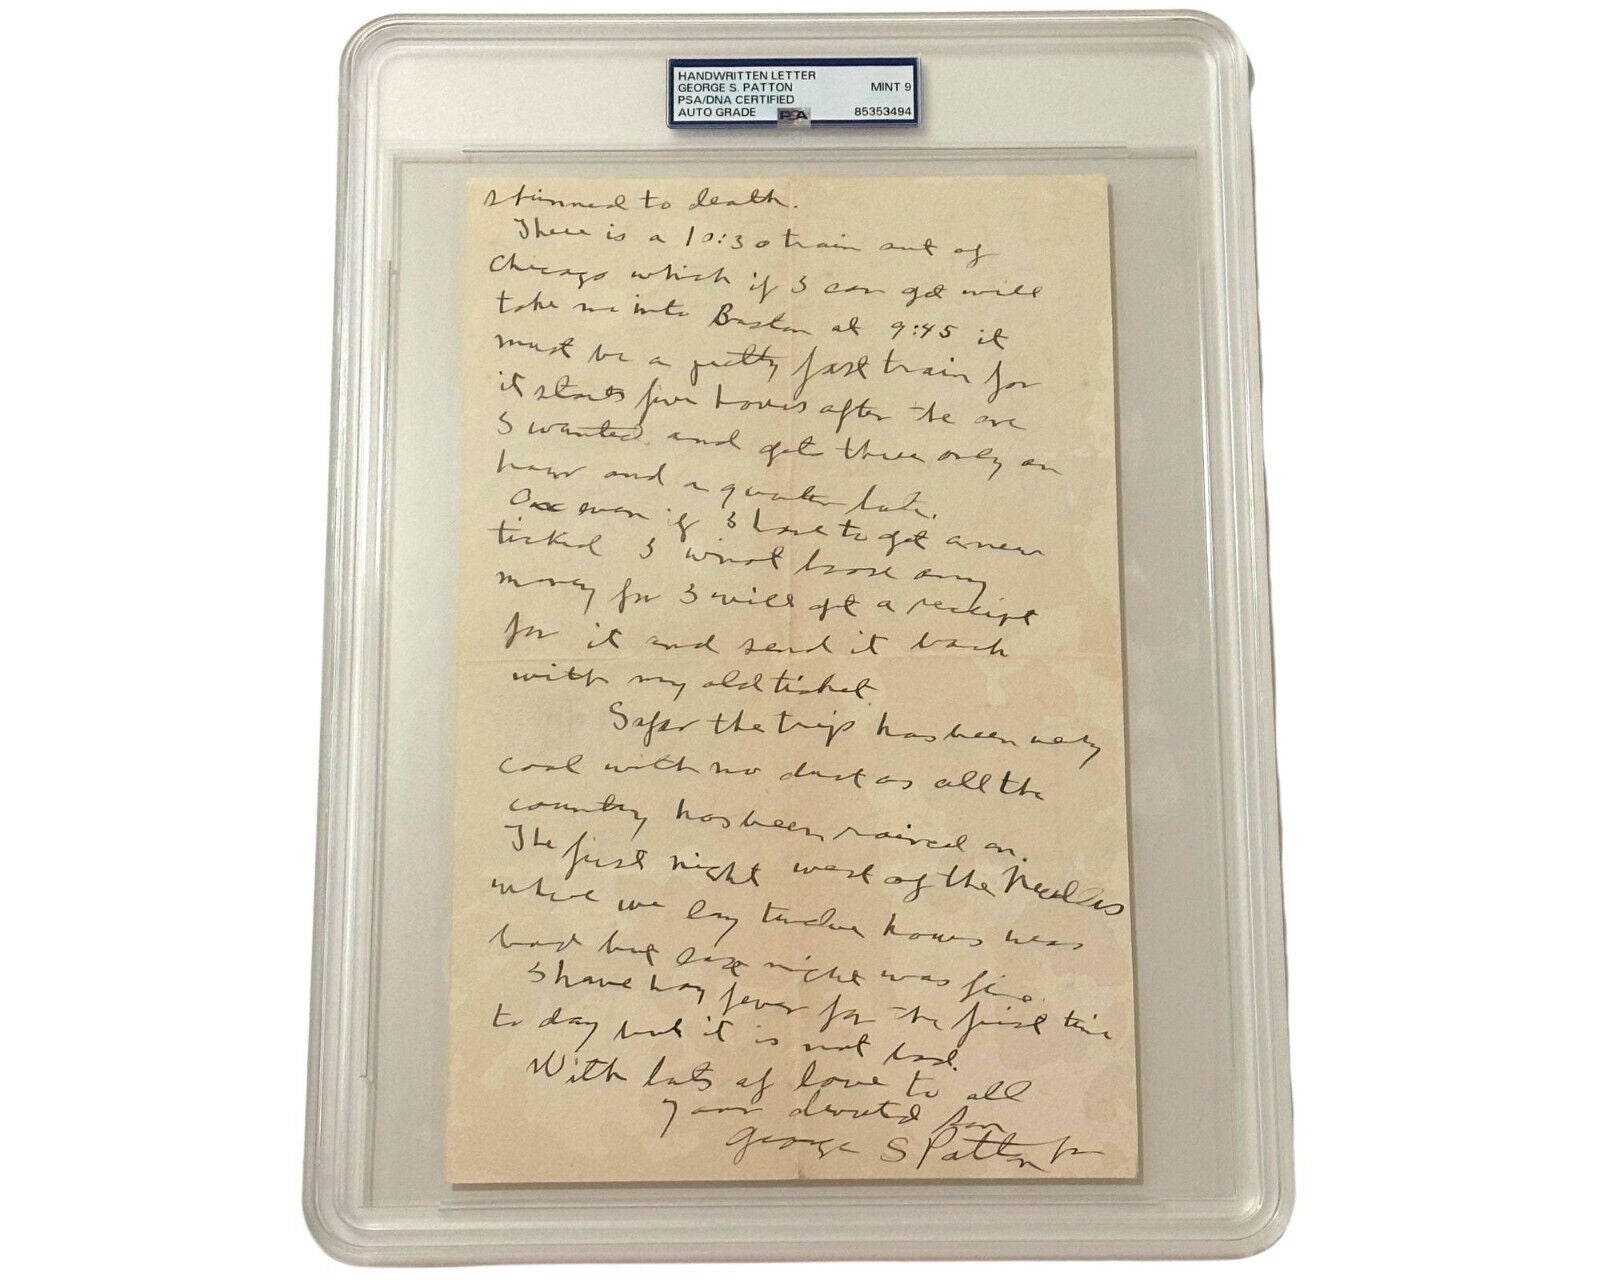 HANDWRITTEN LETTER
GEORGE S. PATTON MINT 9
PSA/DNA CERTIFIED
AUTO GRADE PSA 85353494
to death.
There is a 10:30 train out of
Chicago which if I can get will
take me into Boston at 9:45 it
must be a pretty fast train for
it starts five hours after the one
I wanted and gets there only an
hour and a quarter late.
even if I have to get a new
ticket I wnot loose any
money for I will get a receipt
for it and send it back
with my old ticket.
So far the trip has been very
cool with no dust as all the
country has been rained on.
The first night west of the Needles
where we lay twelve hours was
bad but last night was fine.
I have hay fever for the first time
to day but it is not bad.
With lots of love to all
your devoted son
George S Patton Jr